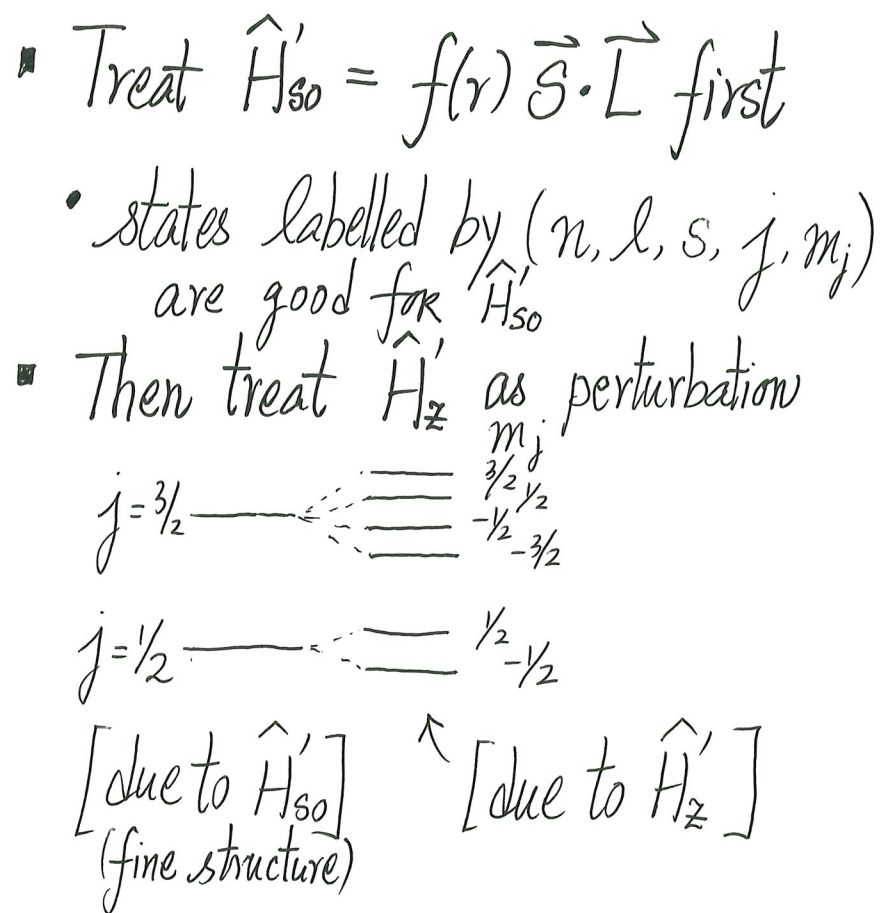 ▪ Treat Ĥ'so = f(r) S⃗·L⃗ first
• states labelled by (n, l, s, j, mj)
are good for Ĥ'so
▪ Then treat Ĥ'z as perturbation
mj
j=3/2 3/2 1/2 -1/2 -3/2
j=1/2 1/2 -1/2
[due to Ĥ'so] ↖ [due to Ĥ'z]
(fine structure)